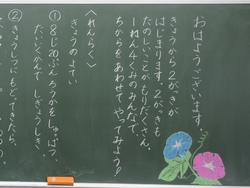 おはようございます。
きょうから2がっきが
はじまります。2がっきも
たのしいことがもりだくさん。
1ねん4くみのみんなで、
ちからをあわせてやってみよう！
＜れんらく＞
きょうのよてい
① 8じ20ぷんろうかをしゅっぱつ、
たいくかんで しぎょうしき。
② きょうしつにもどってきたら、